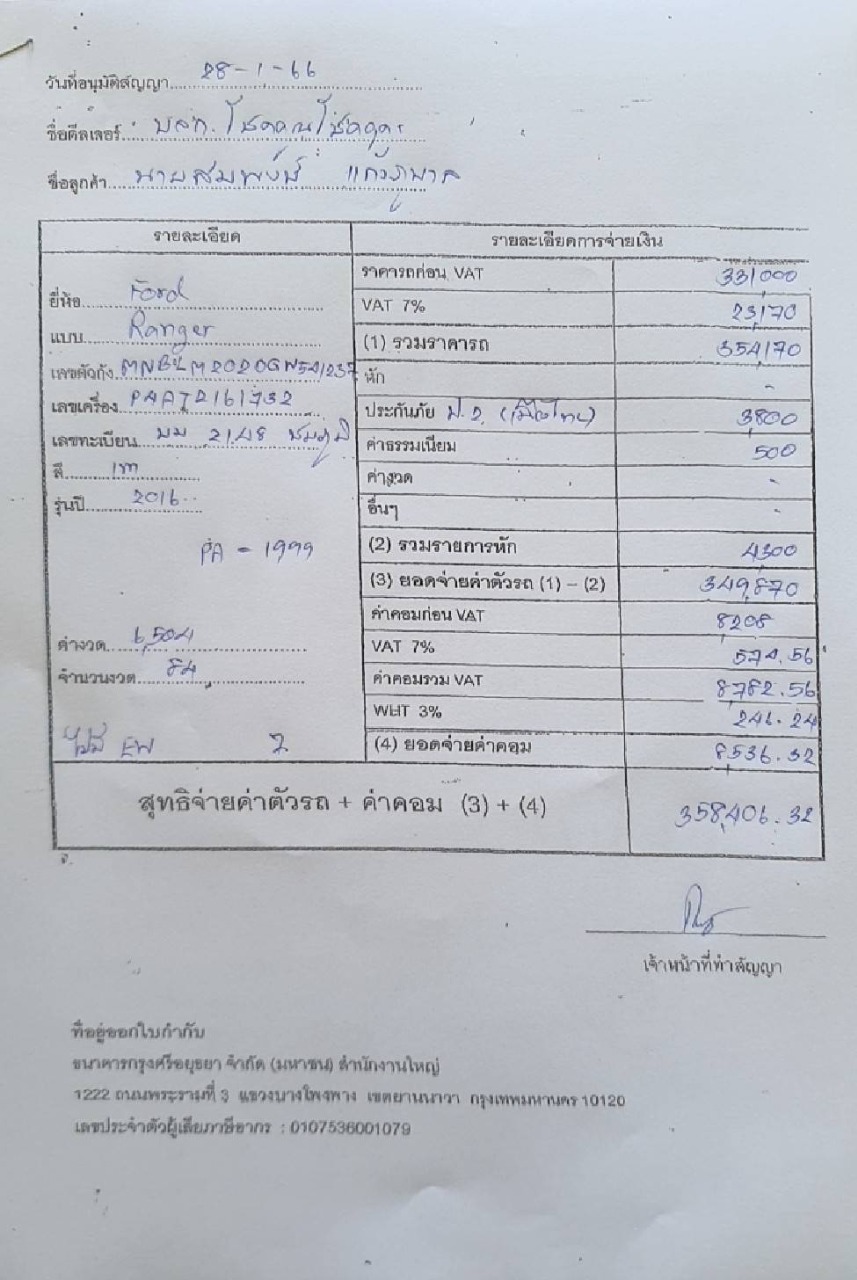 วันที่อนุมัติสัญญา 28-1-66
ชื่อดีลเลอร์ บจก. โชคคูณโชค
ชื่อลูกค้า นายสมพงษ์
รายละเอียด
รายละเอียดการจ่ายเงิน
ราคารถก่อน VAT 331,000
ยี่ห้อ Ford
VAT 7% 23,170
แบบ Ranger
(1) รวมราคารถ 354,170
เลขตัวถัง
หัก -
เลขเครื่อง P4AT2161732
ประกันภัย ป.2 3,800
เลขทะเบียน 2148 ชัยภูมิ
ค่าธรรมเนียม 500
สี เทา
ค่างวด -
รุ่นปี 2016
อื่นๆ -
PA - 1999
(2) รวมรายการหัก 4,300
(3) ยอดจ่ายค่าตัวรถ (1) – (2) 349,870
ค่าคอมก่อน VAT 8,208
ค่างวด 6,504
VAT 7% 574.56
จำนวนงวด 84
ค่าคอมรวม VAT 8,782.56
WHT 3% 246.24
ไม่มี EW 2
(4) ยอดจ่ายค่าคอม 8,536.32
สุทธิจ่ายค่าตัวรถ + ค่าคอม (3) + (4) 358,406.32
เจ้าหน้าที่ทำสัญญา
ที่อยู่ออกใบกำกับ
ธนาคารกรุงศรีอยุธยา จำกัด (มหาชน) สำนักงานใหญ่
1222 ถนนพระรามที่ 3 แขวงบางโพงพาง เขตยานนาวา กรุงเทพมหานคร 10120
เลขประจำตัวผู้เสียภาษีอากร : 0107536001079